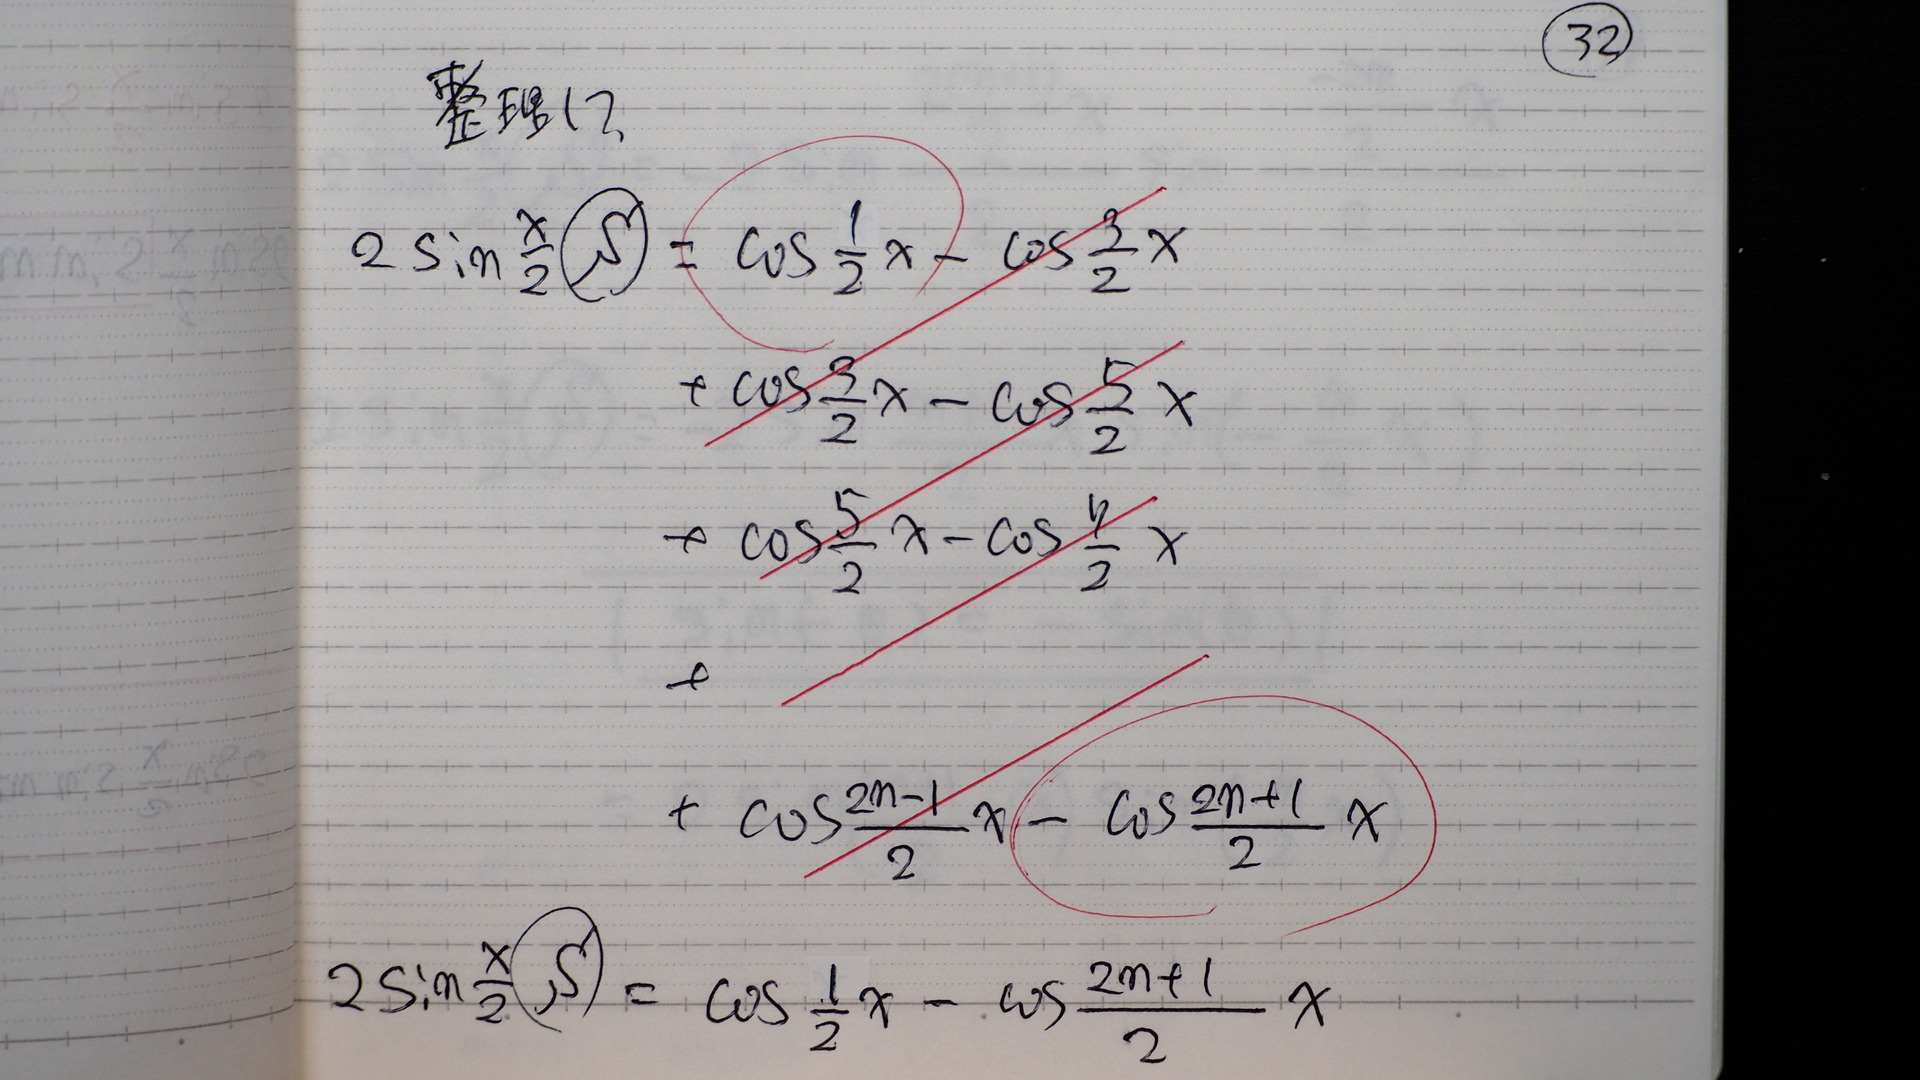 32
整理して
2 sin x/2 S = cos 1/2 x - cos 3/2 x
+ cos 3/2 x - cos 5/2 x
+ cos 5/2 x - cos 7/2 x
+
+ cos (2n-1)/2 x - cos (2n+1)/2 x
2 sin x/2 S = cos 1/2 x - cos (2n+1)/2 x